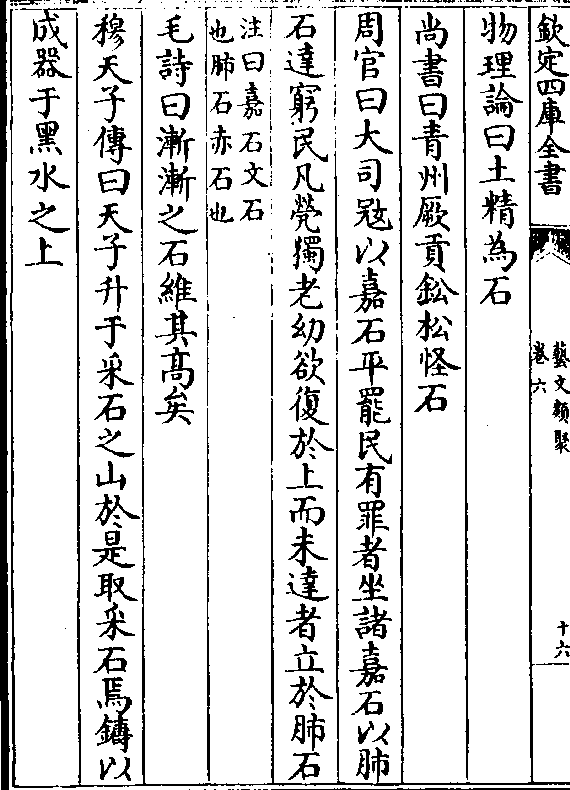 欽定四庫全書
藝文類聚
卷六
十六
物理論曰土精為石
尚書曰青州厥貢鈆松怪石
周官曰大司寇以嘉石平罷民有罪者坐諸嘉石以肺
石達窮民凡煢獨老幼欲復於上而未達者立於肺石
注曰嘉石文石
也肺石赤石也
毛詩曰漸漸之石維其髙矣
穆天子傳曰天子升于采石之山於是取采石焉鑄以
成器于黑水之上